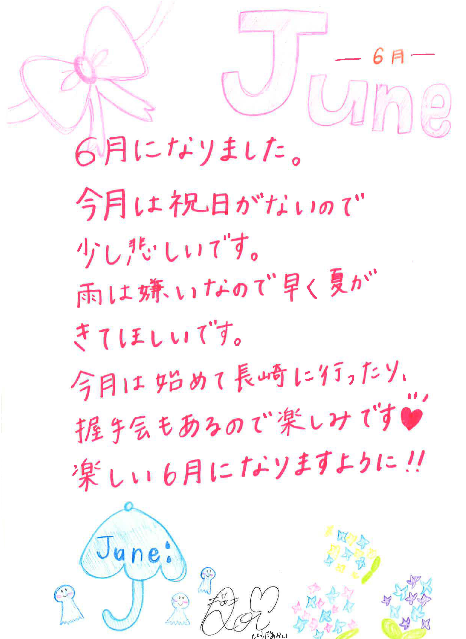 June
—6月—
6月になりました。
今月は祝日がないので
少し悲しいです。
雨は嫌いなので早く夏が
きてほしいです。
今月は始めて長崎に行ったり、
握手会もあるので楽しみです♥
楽しい6月になりますように!!
June